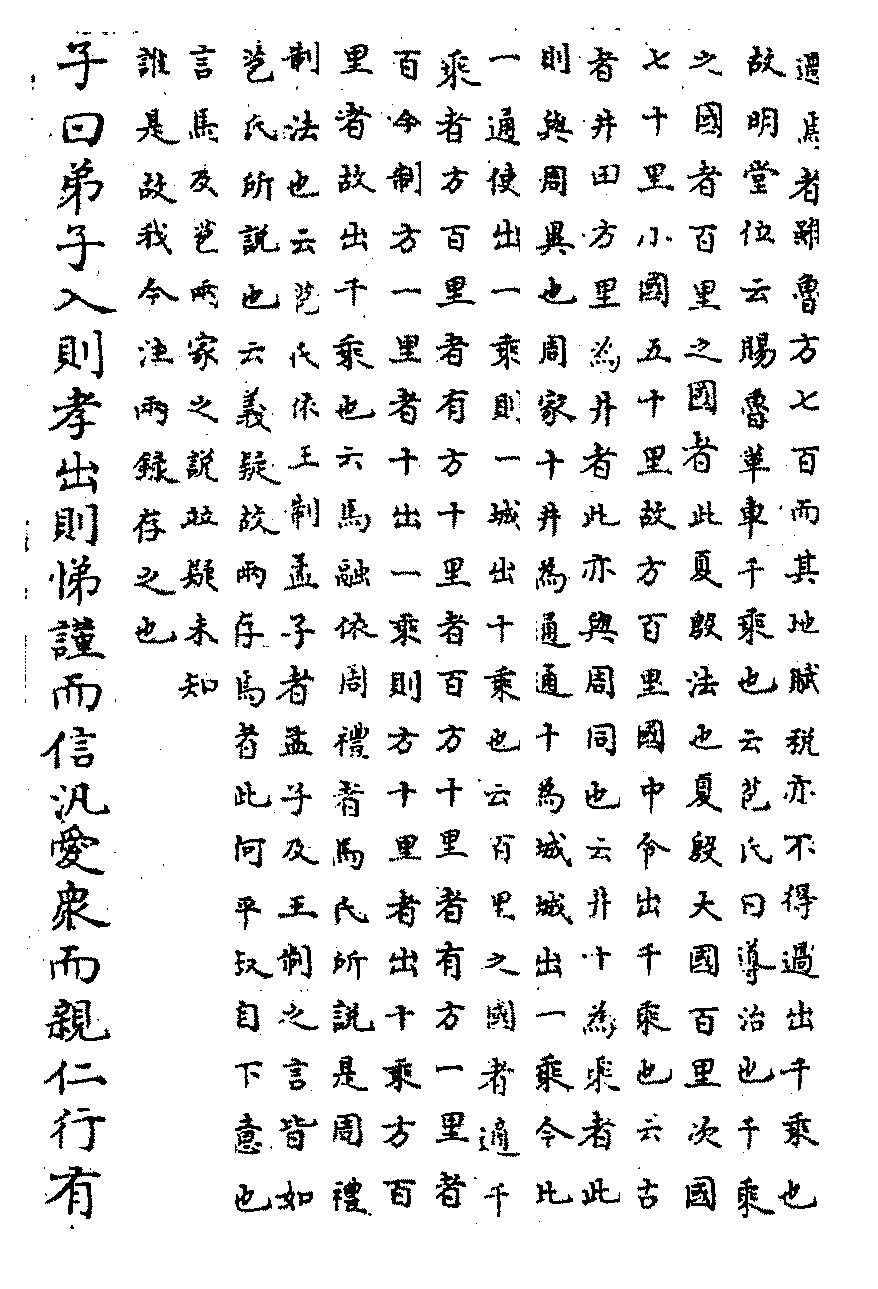 還馬者雖魯方七百而其地賦稅亦不得過出千乘也
故明堂位云賜魯革車千乘也云苞氏曰導治也千乘
之國者百里之國者此夏殷法也夏殷大國百里次國
七十里小國五十里故方百里國中令出千乘也云古
者井田方里為井者此亦與周同也云井十為乘者此
則與周異也周家十井為通通十為城城出一乘今此
一通使出一乘則一城出十乘也云百里之國者適千
乘者方百里者有方十里者百方十里者有方一里者
百今制方一里者十出一乘則方十里者出十乘方百
里者故出千乘也云馬融依周禮者馬氏所說是周禮
制法也云苞氏依王制孟子者孟子及王制之言皆如
苞氏所說也云義疑故兩存焉者此何平叔自下意也
言馬及苞兩家之說竝疑未知
誰是故我今注兩錄存之也
子曰弟子入則孝出則悌謹而信汎愛眾而親仁行有